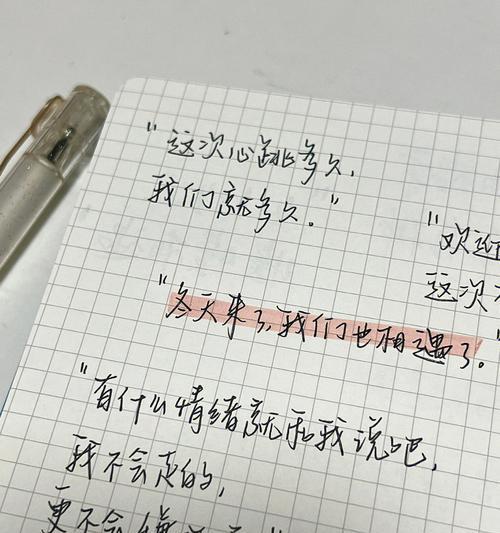 "这次心跳多久,
我们就多久。"
"欢迎
这次
"冬天来了,我们也相遇了。"
"有什么情绪就和我说吧,
我不会走的,
更不会嫌